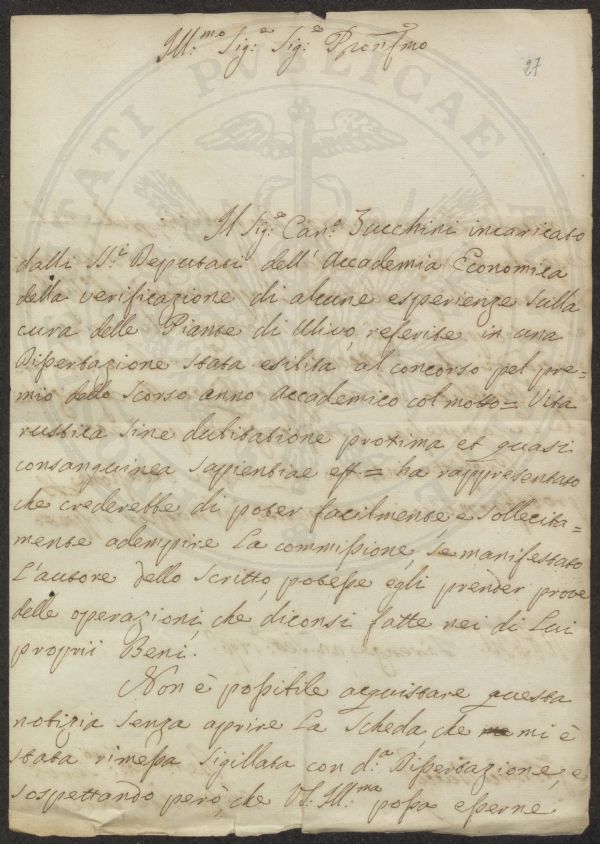 Ill:mo Sig:re Sig:re Pron Colmo
27
Il Sig:re Cav:e Zucchini incaricato
dalli SS:ri Deputati dell' Accademia Economica
della verificazione di alcune esperienze sulla
cura delle Piante di Ulivo, referite in una
Dissertazione stata esibita al concorso pel pre=
mio dello scorso anno Accademico col motto = Vita
rustica sine dubitatione protima et quasi
consanguinea sapientiae est = ha rappresentato
che crederebbe di poter facilmente, e sollecita=
mente adempire la commissione, se manifestato
l'autore dello scritto, potesse egli prender prove
delle operazioni, che diconsi fatte nei di Lui
proprii Beni.
Non è possibile acquistare questa
notizia senza aprire la scheda, che mi è
stata rimessa sigillata con d:a Dissertazione, e
sospettando però, che VS: Ill:ma possa esserne
PUBLICAE